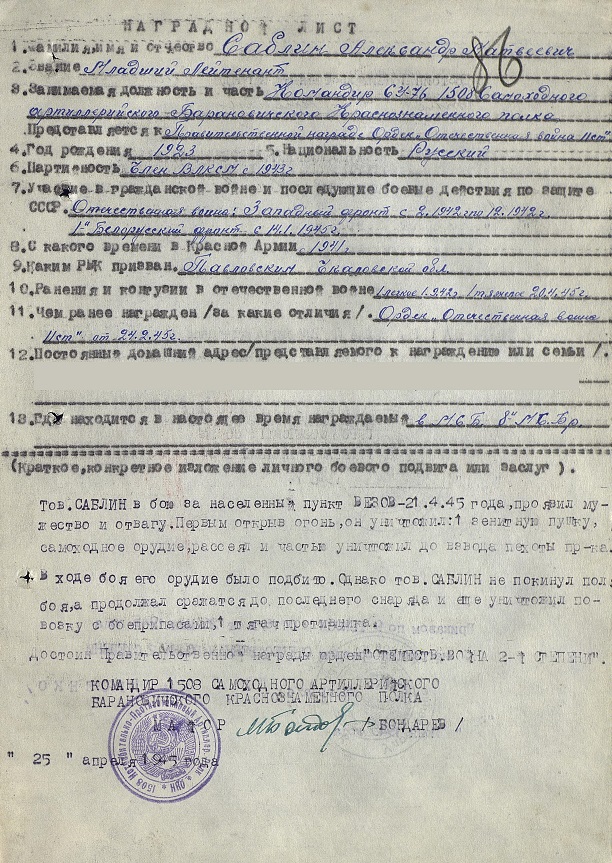 НАГРАДНОЙ ЛИСТ
1. Фамилия, имя и отчество Саблин Александр Матвеевич
86
2. Звание Младший Лейтенант
3. Занимаемая должность и часть Командир СУ-76 1508 Самоходного
артиллерийского Барановичского Краснознаменного полка
Представляется к Правительственной награде Орден „Отечественная война IIст"
4. Год рождения 1923 5. Национальность Русский
6. Партийность Член ВЛКСМ с 1943г
7. Участие в гражданской войне и последующие боевые действия по защите
СССР. Отечественная война: Западный фронт с 2.1942 по 12.1942г
1й Белорусский фронт с 14.1.1945г.
8. С какого времени в Красной Армии 1941г
9. Каким РВК призван. Павловским Чкаловской обл.
10. Ранения и контузии в отечественной войне 1 легкое 1942г. 1 тяжелое 20.4.45г.
11. Чем ранее награжден /за какие отличия/. Орден „Отечественная война
IIст" от 24.2.45г.
12. Постоянные домашний адрес/представляемого к награждению или семьи/.
13. Где находится в настоящее время награждаемый в МСБ 8й МБр.
(Краткое, конкретное изложение личного боевого подвига или заслуг ).
Тов. САБЛИН в бою за населенный пункт ВЕЗОВ-21.4.45 года, проявил му-
жество и отвагу. Первым открыв огонь, он уничтожил: 1 зенитную пушку,
самоходное орудие, рассеял и частью уничтожил до взвода пехоты пр-ка.
В ходе боя его орудие было подбито. Однако тов. САБЛИН не покинул пол
боя, а продолжал сражатся до последнего снаряда и еще уничтожил по-
возку с боеприпасами, 1 тягач противника.
Достоин Правительственной награды орден "ОТЕЧЕСТВ. ВОЙНА 2-й СТЕПЕНИ".
КОМАНДИР 1508 САМОХОДНОГО АРТИЛЛЕРИЙСКОГО
БАРАНОВИЧСКОГО КРАСНОЗНАМЕННОГО ПОЛКА
МАЙОР /БОНДАРЕВ/
" 25 " апреля 1945 года